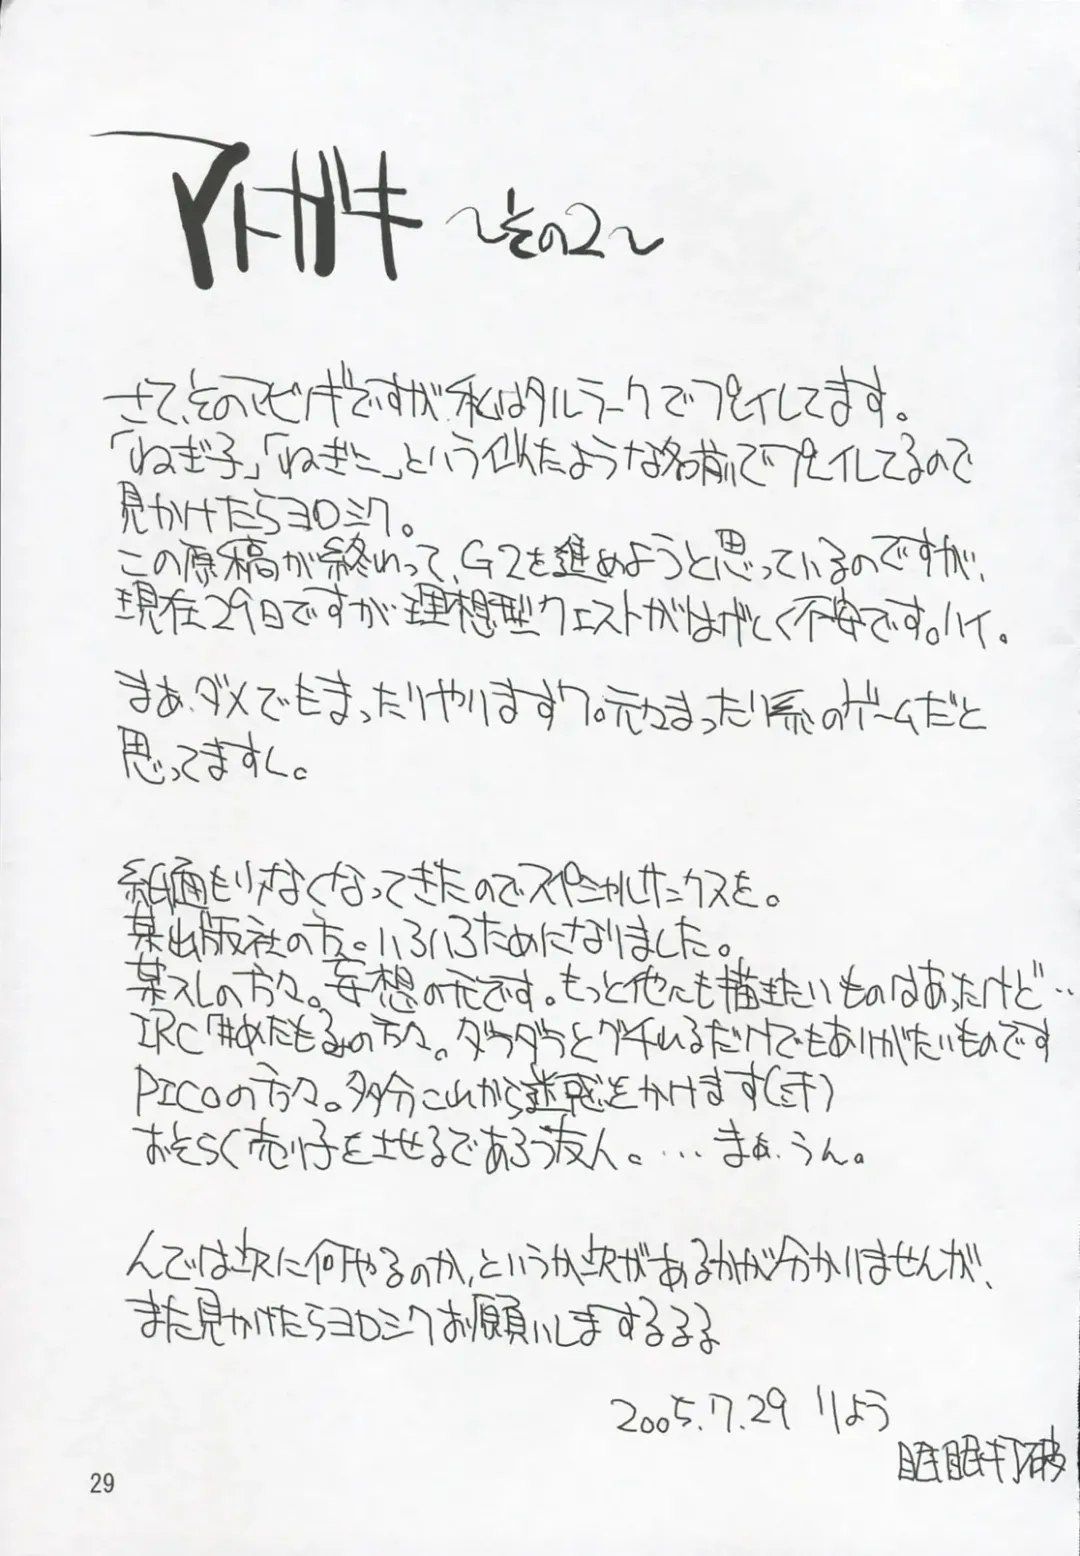 アトガキ ～その2～
さて、そのマビノギですが、私はタルラークでプレイしてます。
「ねぎ子」「ねぎこ」という似たような名前でプレイしてるので
見かけたらヨロシク。
この原稿が終わって、G2を進めようと思っているのですが、
現在29日ですが理想型クエストがはげしく不安です。ハイ。
まぁ、ダメでもまったりやりますワ。元々まったり系のゲームだと
思ってますし。
紙面も少なくなってきたのでスペシャルサンクスを。
某出版社の方。いろいろためになりました。
某スレの方々。妄想の元です。もっと他にも描きたいものはあったけど‥
IRC「#めたもる」の方々。ダラダラとグチれるだけでもありがたいものです
PICOの方々。多分これから迷惑をかけます(汗)
おそらく売り子をさせるであろう友人。…まぁ、うん。
んでは次に何やるのか、というか次があるかが分かりませんが、
また見かけたらヨロシクお願いしまするるる
2005.7.29 りょう
眠眠打破
29